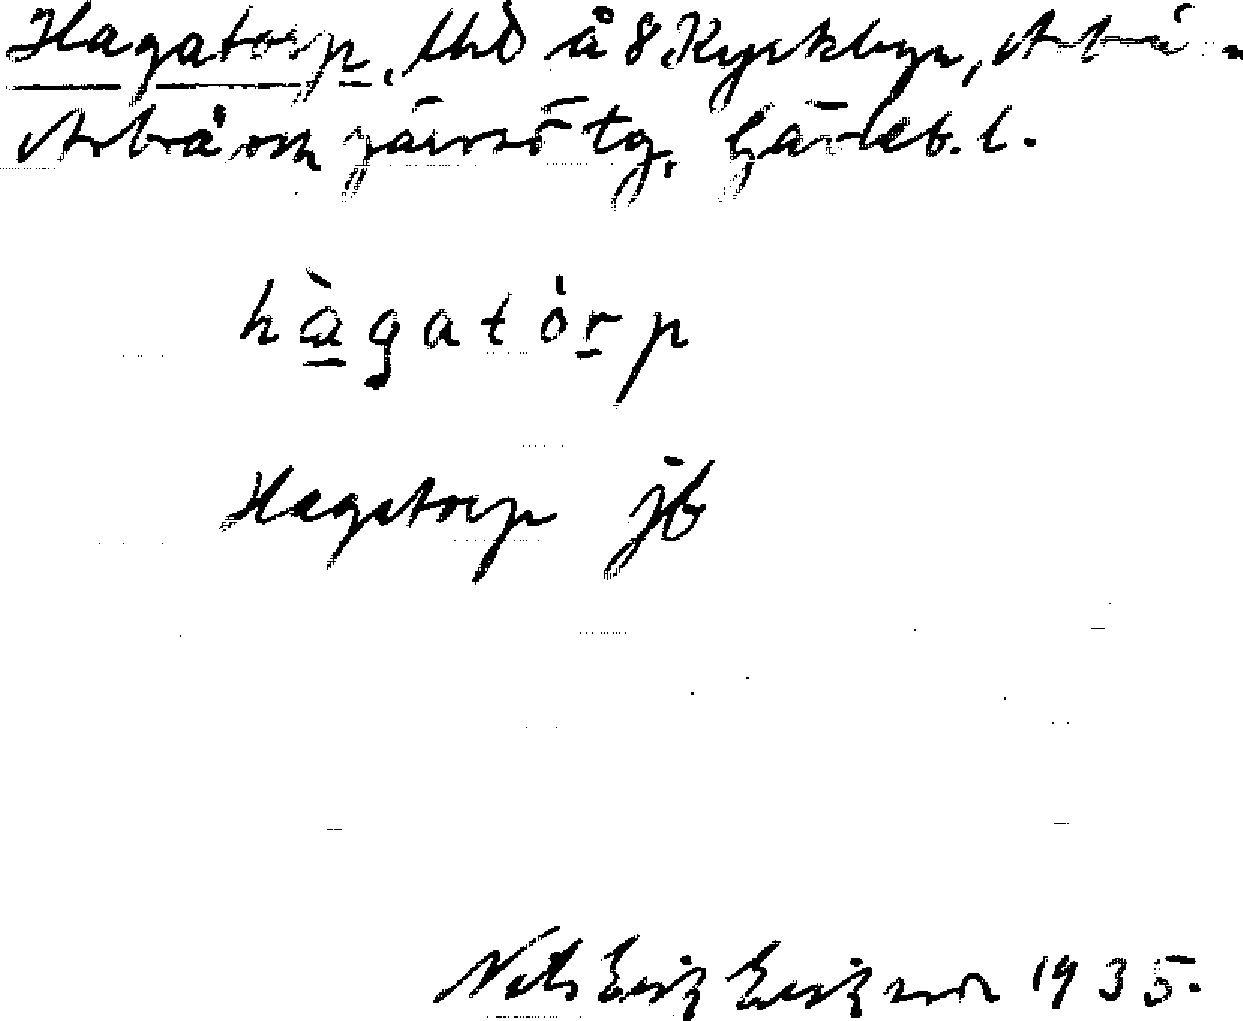 Hagatorp, lhd å 8 Kyrkbyn, Arbrå -
Arbrå och Järvsö tg, Gävleb. l.
hàgatórp
Hagatorp jb
Nils Erik Eriksson 1935.